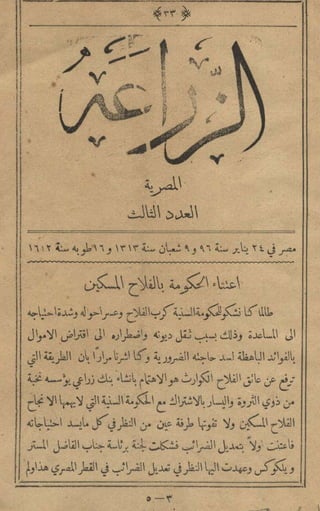 ﴿ ٣٣ ﴾
الزراعة
المصرية
العدد الثالث
مصر في ٢٤ يناير سنة ٩٦ و ٩ شعبان سنة ١٣١٣ و ١٦ طوبه سنة ١٦١٢
اعتناء الحكومة بالفلاح المسكين
طالما كنا نشكو للحكومة السنية كرب الفلاح وعسر احواله وشدة احتياجه
الى المساعدة وذلك بسبب ثقل ديونه واضطراره الى اقتراض الاموال
بالفوائد الباهظة لسد حاجته الضرورية وكنا اشرنا مراراً بان الطريقة التي
ترفع عن عائق الفلاح الكوارث هو الاهتمام بانشاء بنك زراعي يؤسسه نخبة
من ذوي الثروة واليسار بالاشتراك مع الحكومة السنية التي لا يهمها الا نجاح
الفلاح المسكين ولا تفوتها طرفة عين من النظر في كل ما يسد احتياجاته
فاعتنت اولاً بتعديل الضرائب فشكلت لجنة برئاسة جناب الفاضل المستر
ويلكوكس وعهدت اليها النظر في تعديل الضرائب في القطر المصري هذا ولم
٣ — ٥